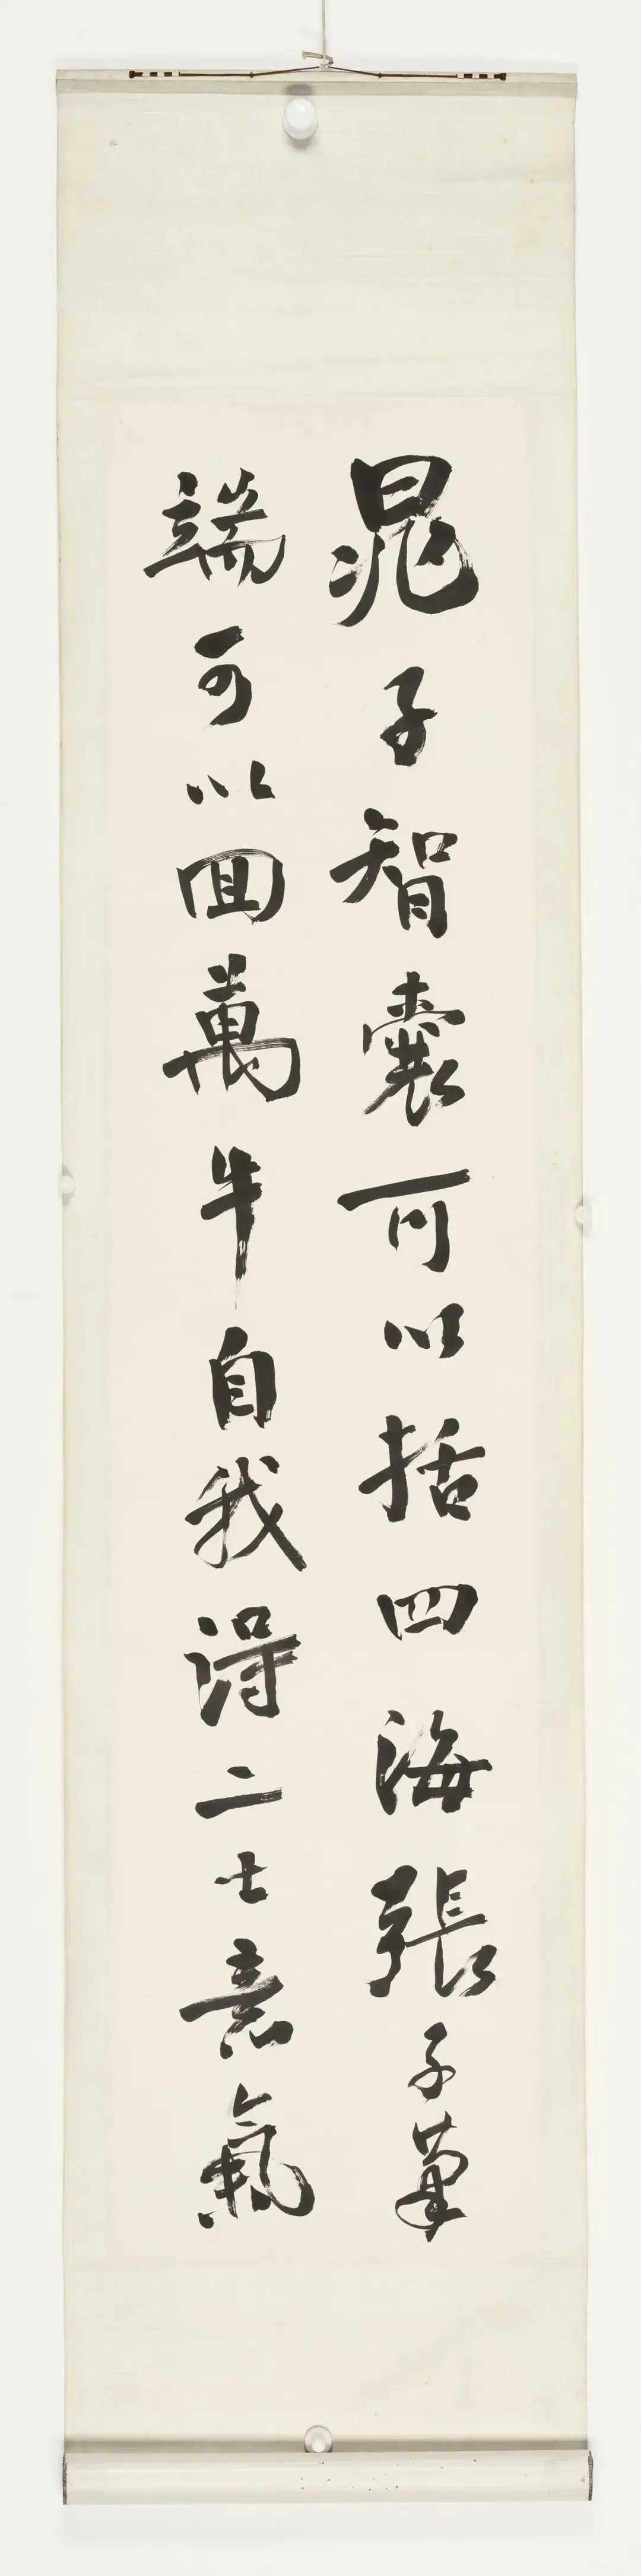 晁子智囊可以括四海張子筆
端可以回萬牛自我得二士意氣